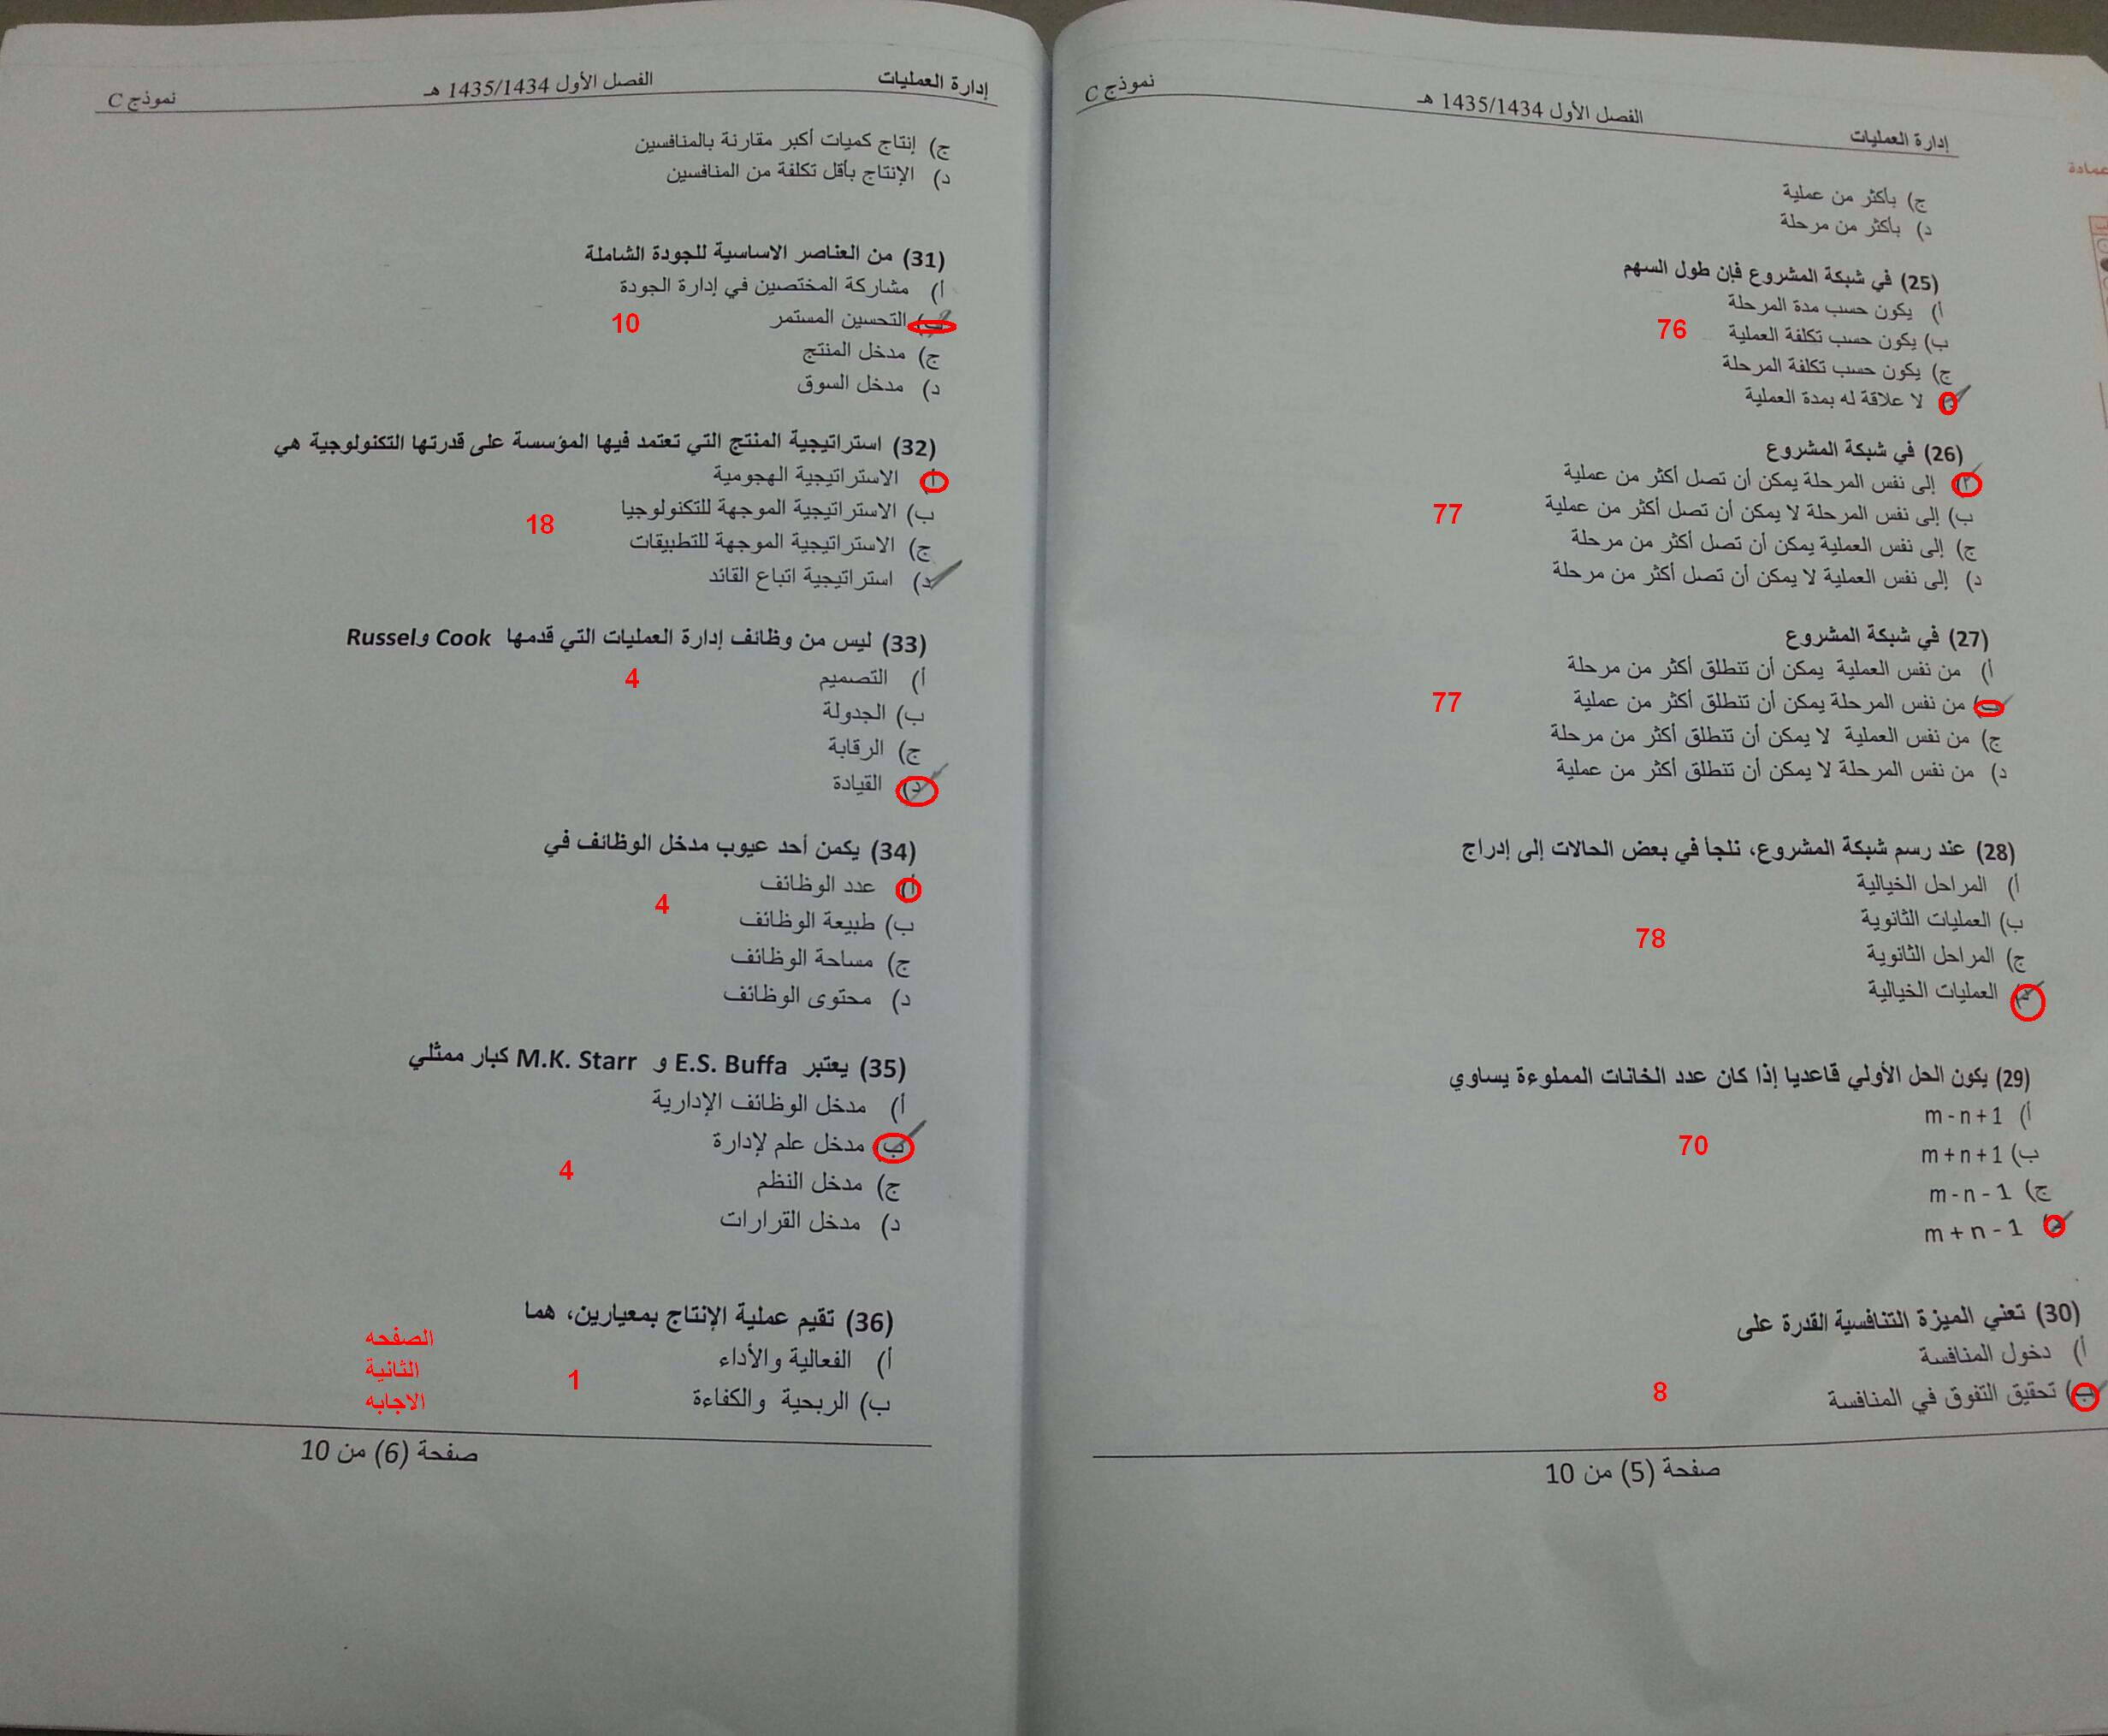 إدارة العمليات
الفصل الأول 1435/1434 هـ
نموذج C
ج) بأكثر من عملية
د) بأكثر من مرحلة
(25) في شبكة المشروع فإن طول السهم
أ) يكون حسب مدة المرحلة
ب) يكون حسب تكلفة العملية
76
ج) يكون حسب تكلفة المرحلة
د) لا علاقة له بمدة العملية
(26) في شبكة المشروع
أ) إلى نفس المرحلة يمكن أن تصل أكثر من عملية
ب) إلى نفس المرحلة لا يمكن أن تصل أكثر من عملية
77
ج) إلى نفس العملية يمكن أن تصل أكثر من مرحلة
د) إلى نفس العملية لا يمكن أن تصل أكثر من مرحلة
(27) في شبكة المشروع
أ) من نفس العملية يمكن أن تنطلق أكثر من مرحلة
ب) من نفس المرحلة يمكن أن تنطلق أكثر من عملية
77
ج) من نفس العملية لا يمكن أن تنطلق أكثر من مرحلة
د) من نفس المرحلة لا يمكن أن تنطلق أكثر من عملية
(28) عند رسم شبكة المشروع، نلجأ في بعض الحالات إلى إدراج
أ) المراحل الخيالية
ب) العمليات الثانوية
78
ج) المراحل الثانوية
د) العمليات الخيالية
(29) يكون الحل الأولي قاعديا إذا كان عدد الخانات المملوءة يساوي
أ) m - n + 1
ب) m + n + 1
70
ج) m - n - 1
د) m + n - 1
(30) تعني الميزة التنافسية القدرة على
أ) دخول المنافسة
ب) تحقيق التفوق في المنافسة
8
صفحة (5) من 10
عمادة
إدارة العمليات
الفصل الأول 1435/1434 هـ
نموذج C
ج) إنتاج كميات أكبر مقارنة بالمنافسين
د) الإنتاج بأقل تكلفة من المنافسين
(31) من العناصر الاساسية للجودة الشاملة
أ) مشاركة المختصين في إدارة الجودة
ب) التحسين المستمر
10
ج) مدخل المنتج
د) مدخل السوق
(32) استراتيجية المنتج التي تعتمد فيها المؤسسة على قدرتها التكنولوجية هي
أ) الاستراتيجية الهجومية
ب) الاستراتيجية الموجهة للتكنولوجيا
18
ج) الاستراتيجية الموجهة للتطبيقات
د) استراتيجية اتباع القائد
(33) ليس من وظائف إدارة العمليات التي قدمها Cook وRussel
أ) التصميم
4
ب) الجدولة
ج) الرقابة
د) القيادة
(34) يكمن أحد عيوب مدخل الوظائف في
أ) عدد الوظائف
4
ب) طبيعة الوظائف
ج) مساحة الوظائف
د) محتوى الوظائف
(35) يعتبر E.S. Buffa و M.K. Starr كبار ممثلي
أ) مدخل الوظائف الإدارية
ب) مدخل علم لإدارة
4
ج) مدخل النظم
د) مدخل القرارات
(36) تقيم عملية الإنتاج بمعيارين، هما
أ) الفعالية والأداء
1
ب) الربحية والكفاءة
الصفحه
الثانية
الاجابه
صفحة (6) من 10